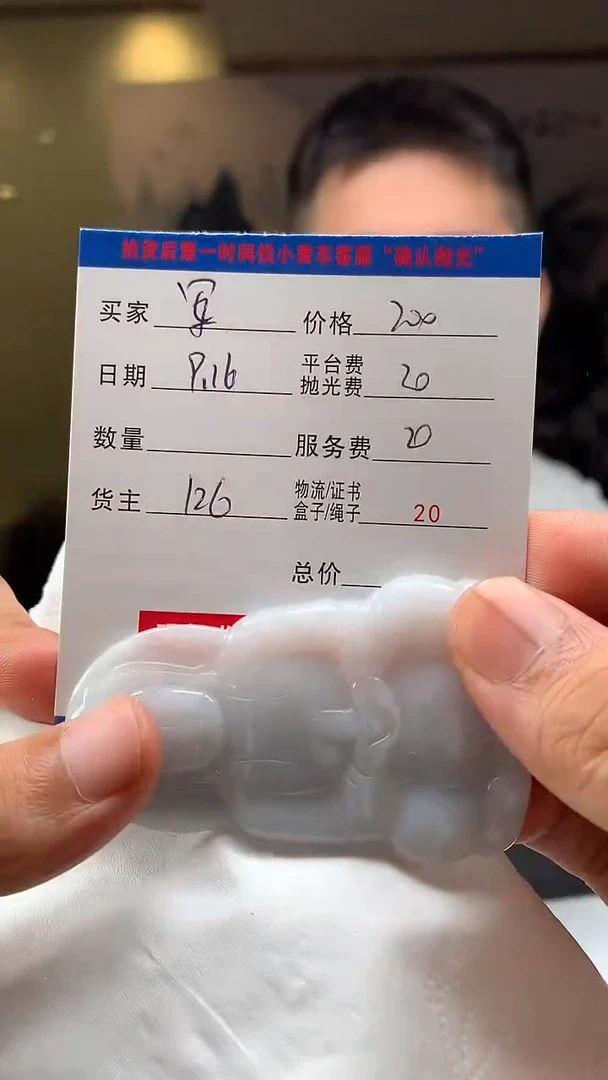 拍货后第一时间找小黄车客服“确认抛光”
买家 价格 200
日期 9.16 平台费 抛光费 20
数量 服务费 20
货主 126 物流/证书 盒子/绳子 20
总价